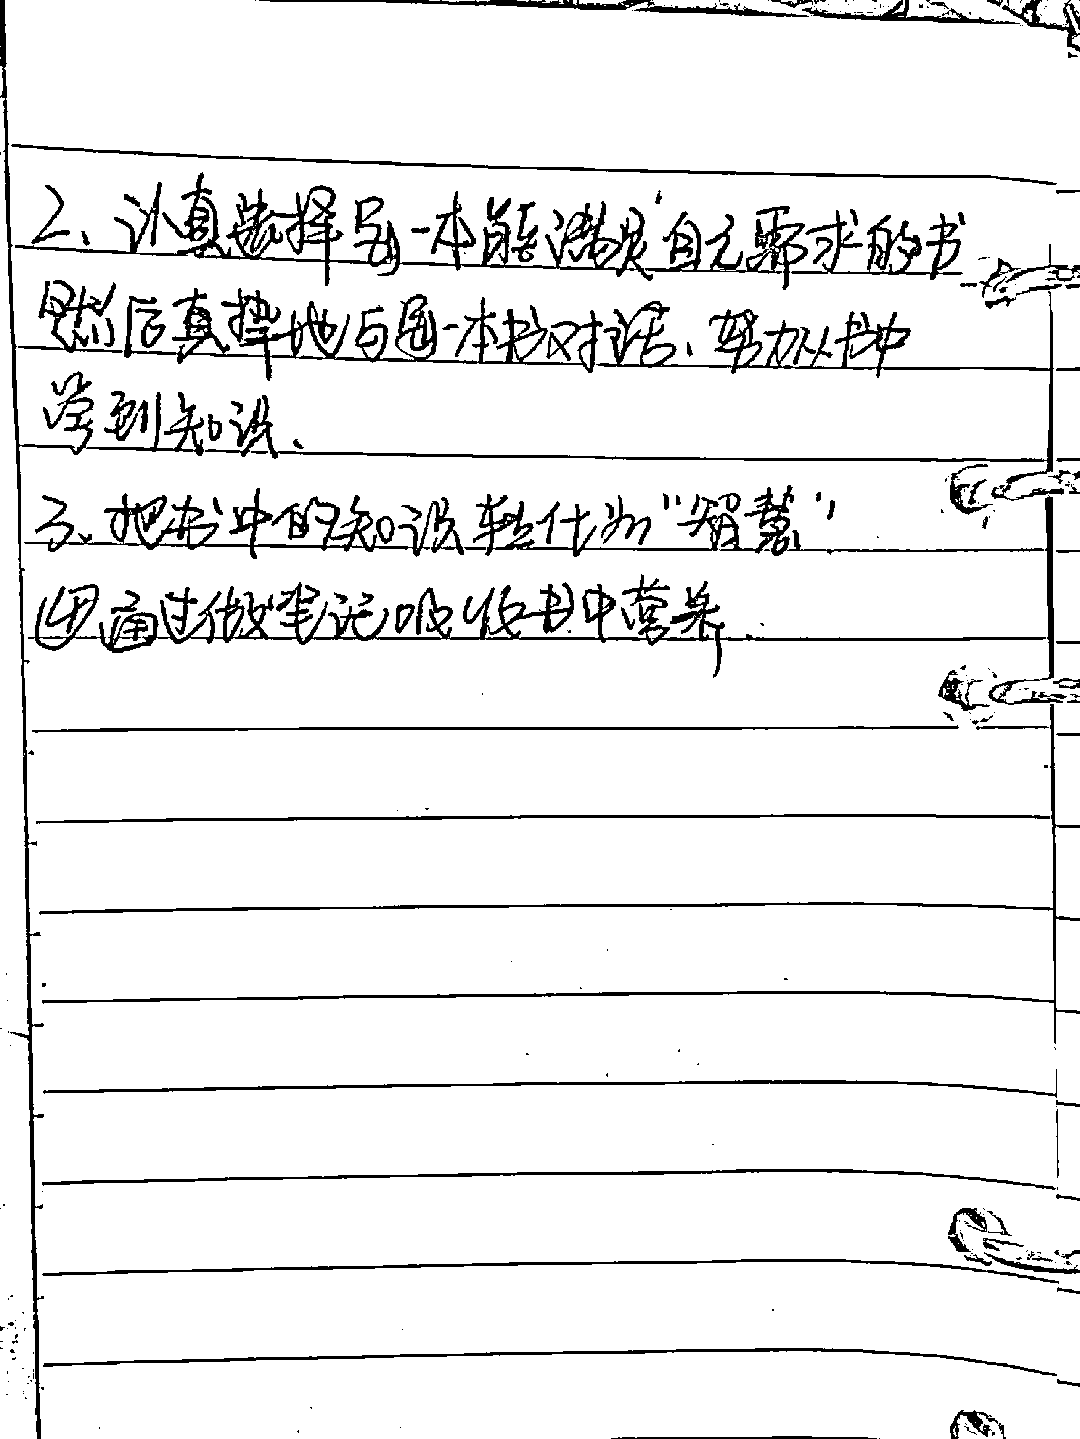 2、认真选择每一本能满足自己需求的书
然后真挚地与每一本书对话、努力从书中
学到知识、
3、把书中的知识转化为“智慧”
④通过做笔记吸收书中营养.